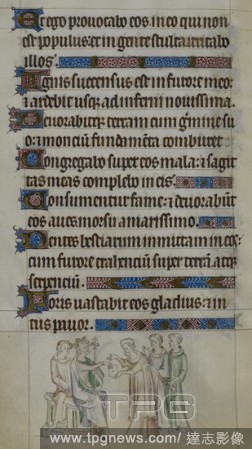 Et ego provocabo eos in eo qui non
est populus: et in gente stulta irritabo
illos.
Ignis succensus est in furore meo:
⁊ ardebit usq; ad inferni novissima.
Devorabitq; terram cum germine su
o: ⁊ monciū fundamēta comburet.
Congregabo super eos mala: ⁊ sagit
tas meas complebo in eis.
Consumentur fame: ⁊ devorabūt
eos aves morsu amarissimo.
Dentes bestiarum inmittam in eos:
cum furore trahencium super terrā atq;
serpenciū.
Foris vastabit eos gladius: ⁊ in
tus pavor.
TPG
www.tpgnews.com/ 達志影像